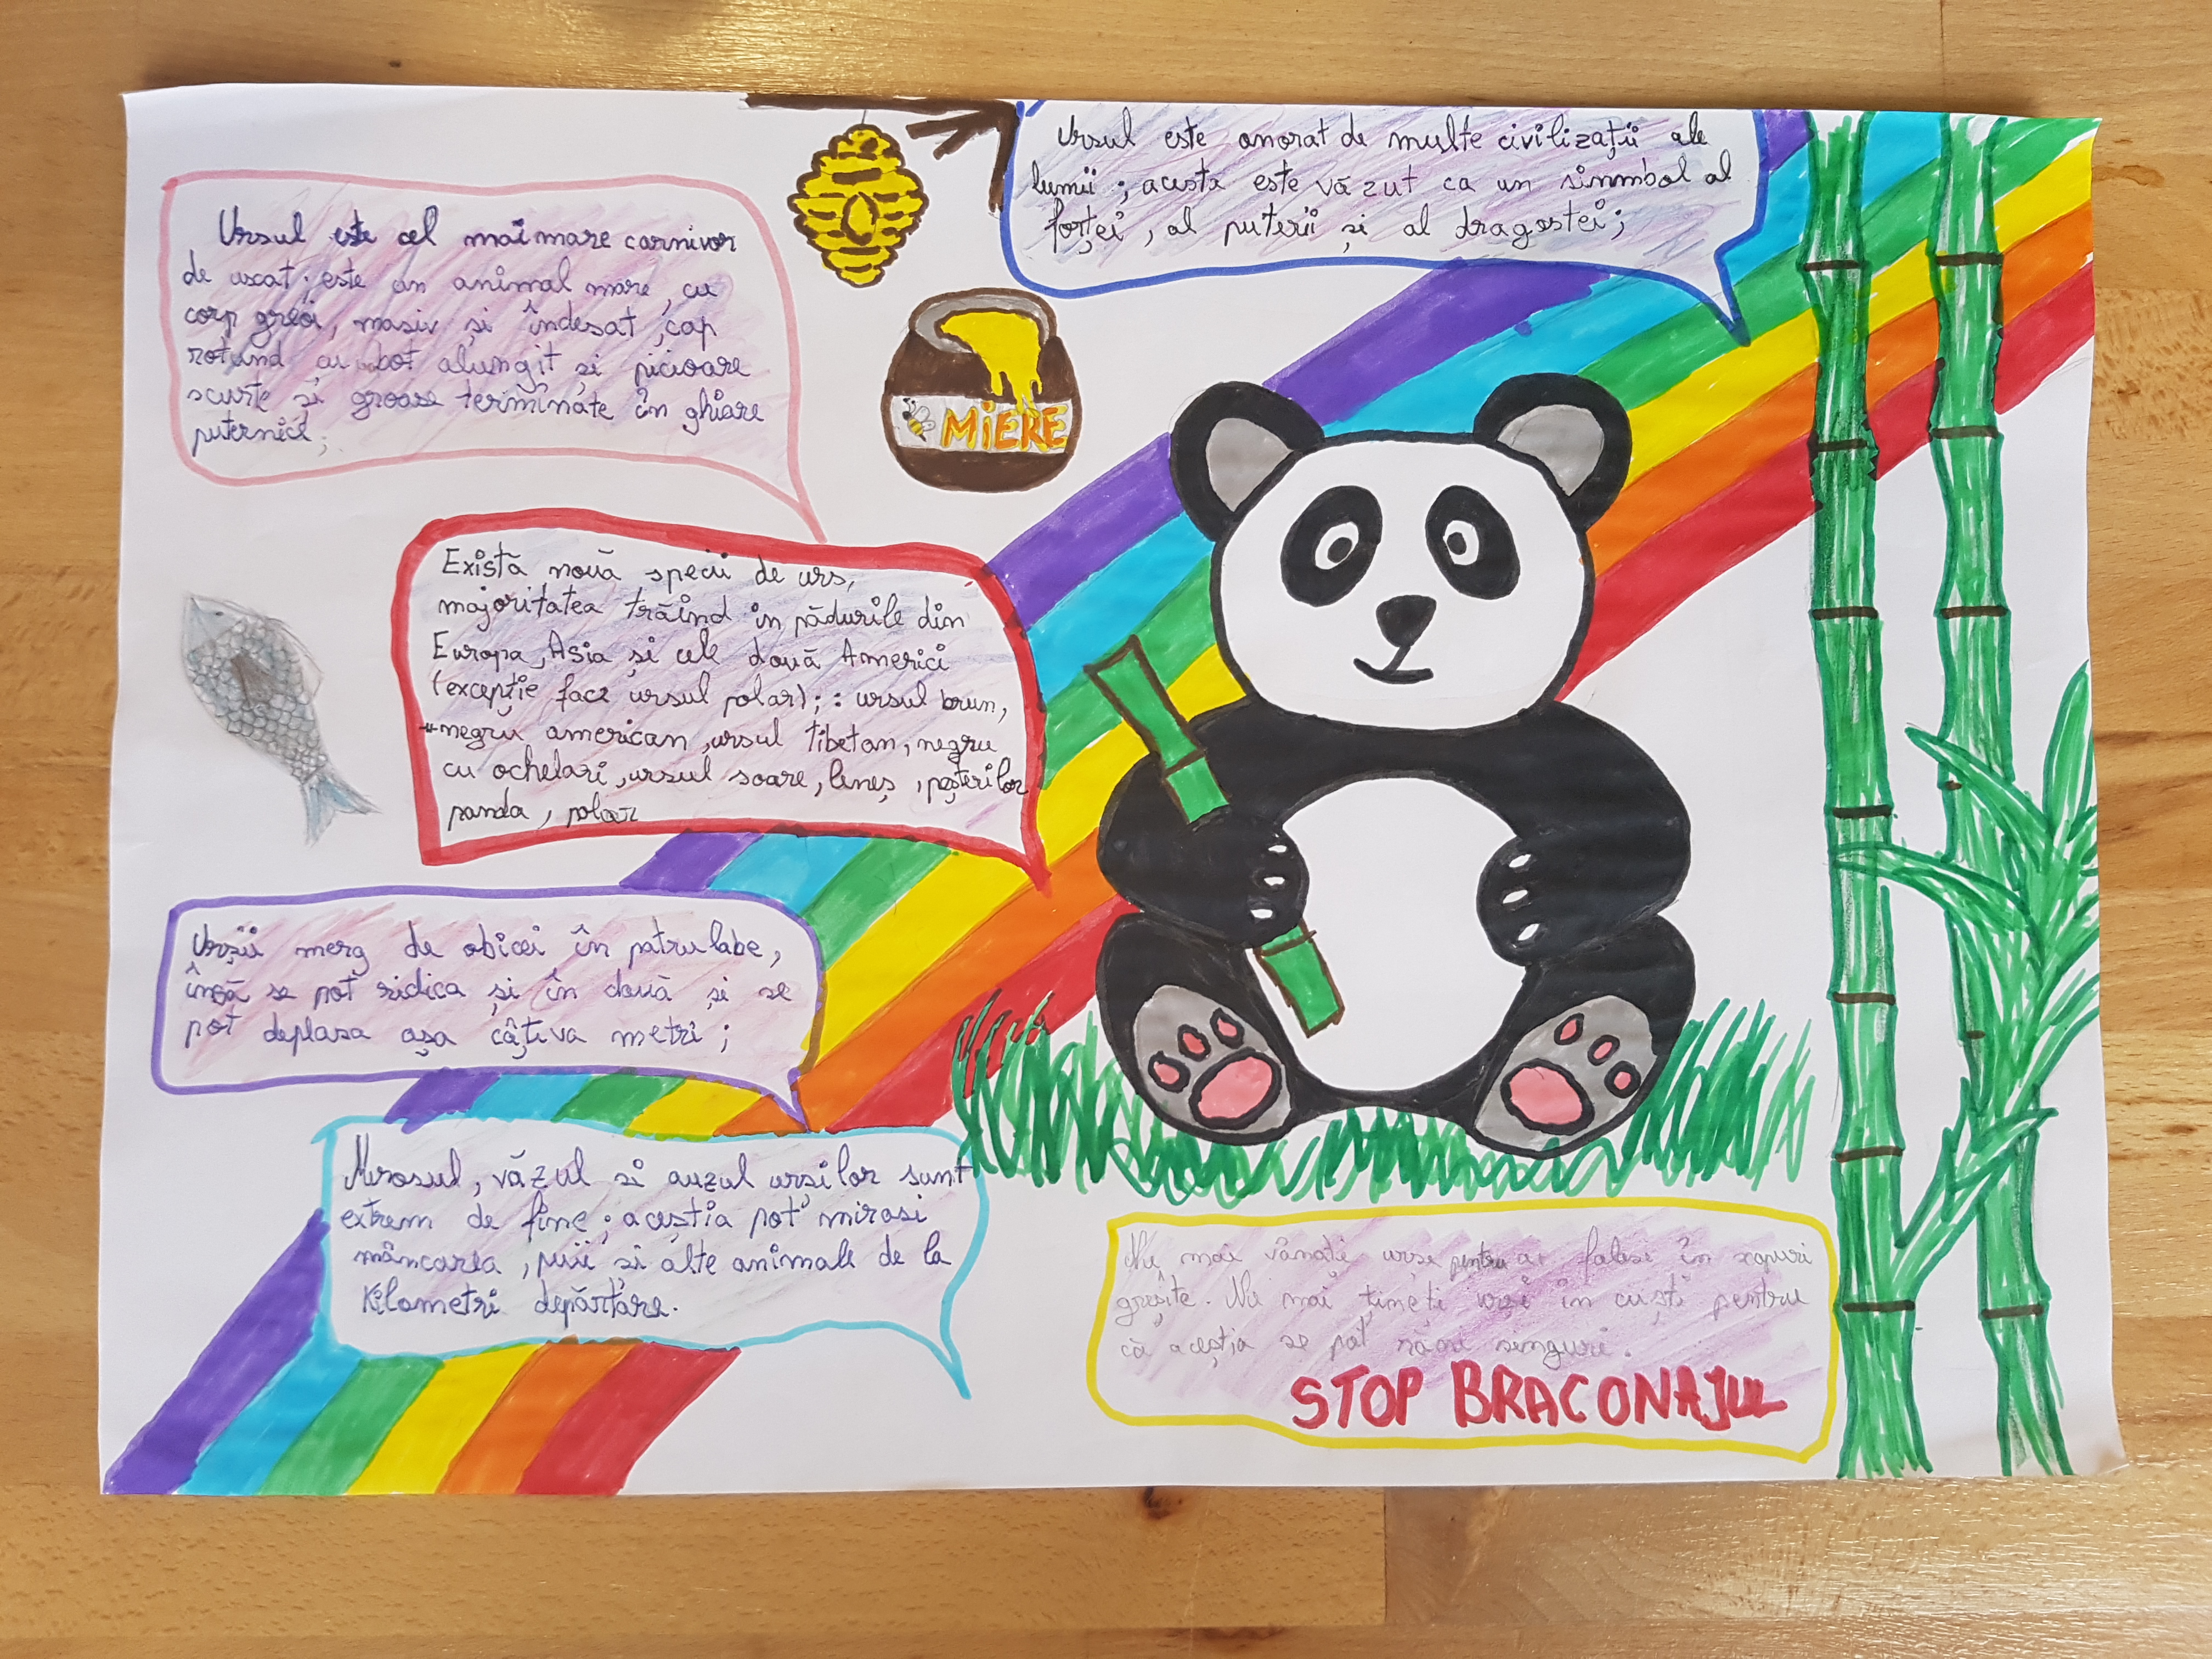 Ursul este cel mai mare carnivor
de uscat; este un animal mare, cu
corp greoi, masiv și îndesat, cap
rotund cu bot alungit și picioare
scurte și groase terminate în ghiare
puternice;
Ursul este onorat de multe civilizații ale
lumii; acesta este văzut ca un simmbol al
forței, al puterii și al dragostei;
MiERE
Există nouă specii de urs,
majoritatea trăind in pădurile din
Europa, Asia și cele două Americi
(excepție face ursul polar);: ursul brun,
negru american, ursul tibetan, negru
cu ochelari, ursul soare, leneș, peșterilor
panda, polar
Urșii merg de obicei în patru labe,
însă se pot ridica și în două și se
pot deplasa așa câțiva metri;
Mirosul, văzul si auzul urșilor sunt
extrem de fine; aceștia pot mirosi
mâncarea, puii si alte animale de la
Kilometri depărtare.
Nu mai vânați urși pentru a-i folosi în scopuri
greșite. Nu mai țineți urși in cuști pentru
că aceștia se pot răni singuri.
STOP BRACONAJUL